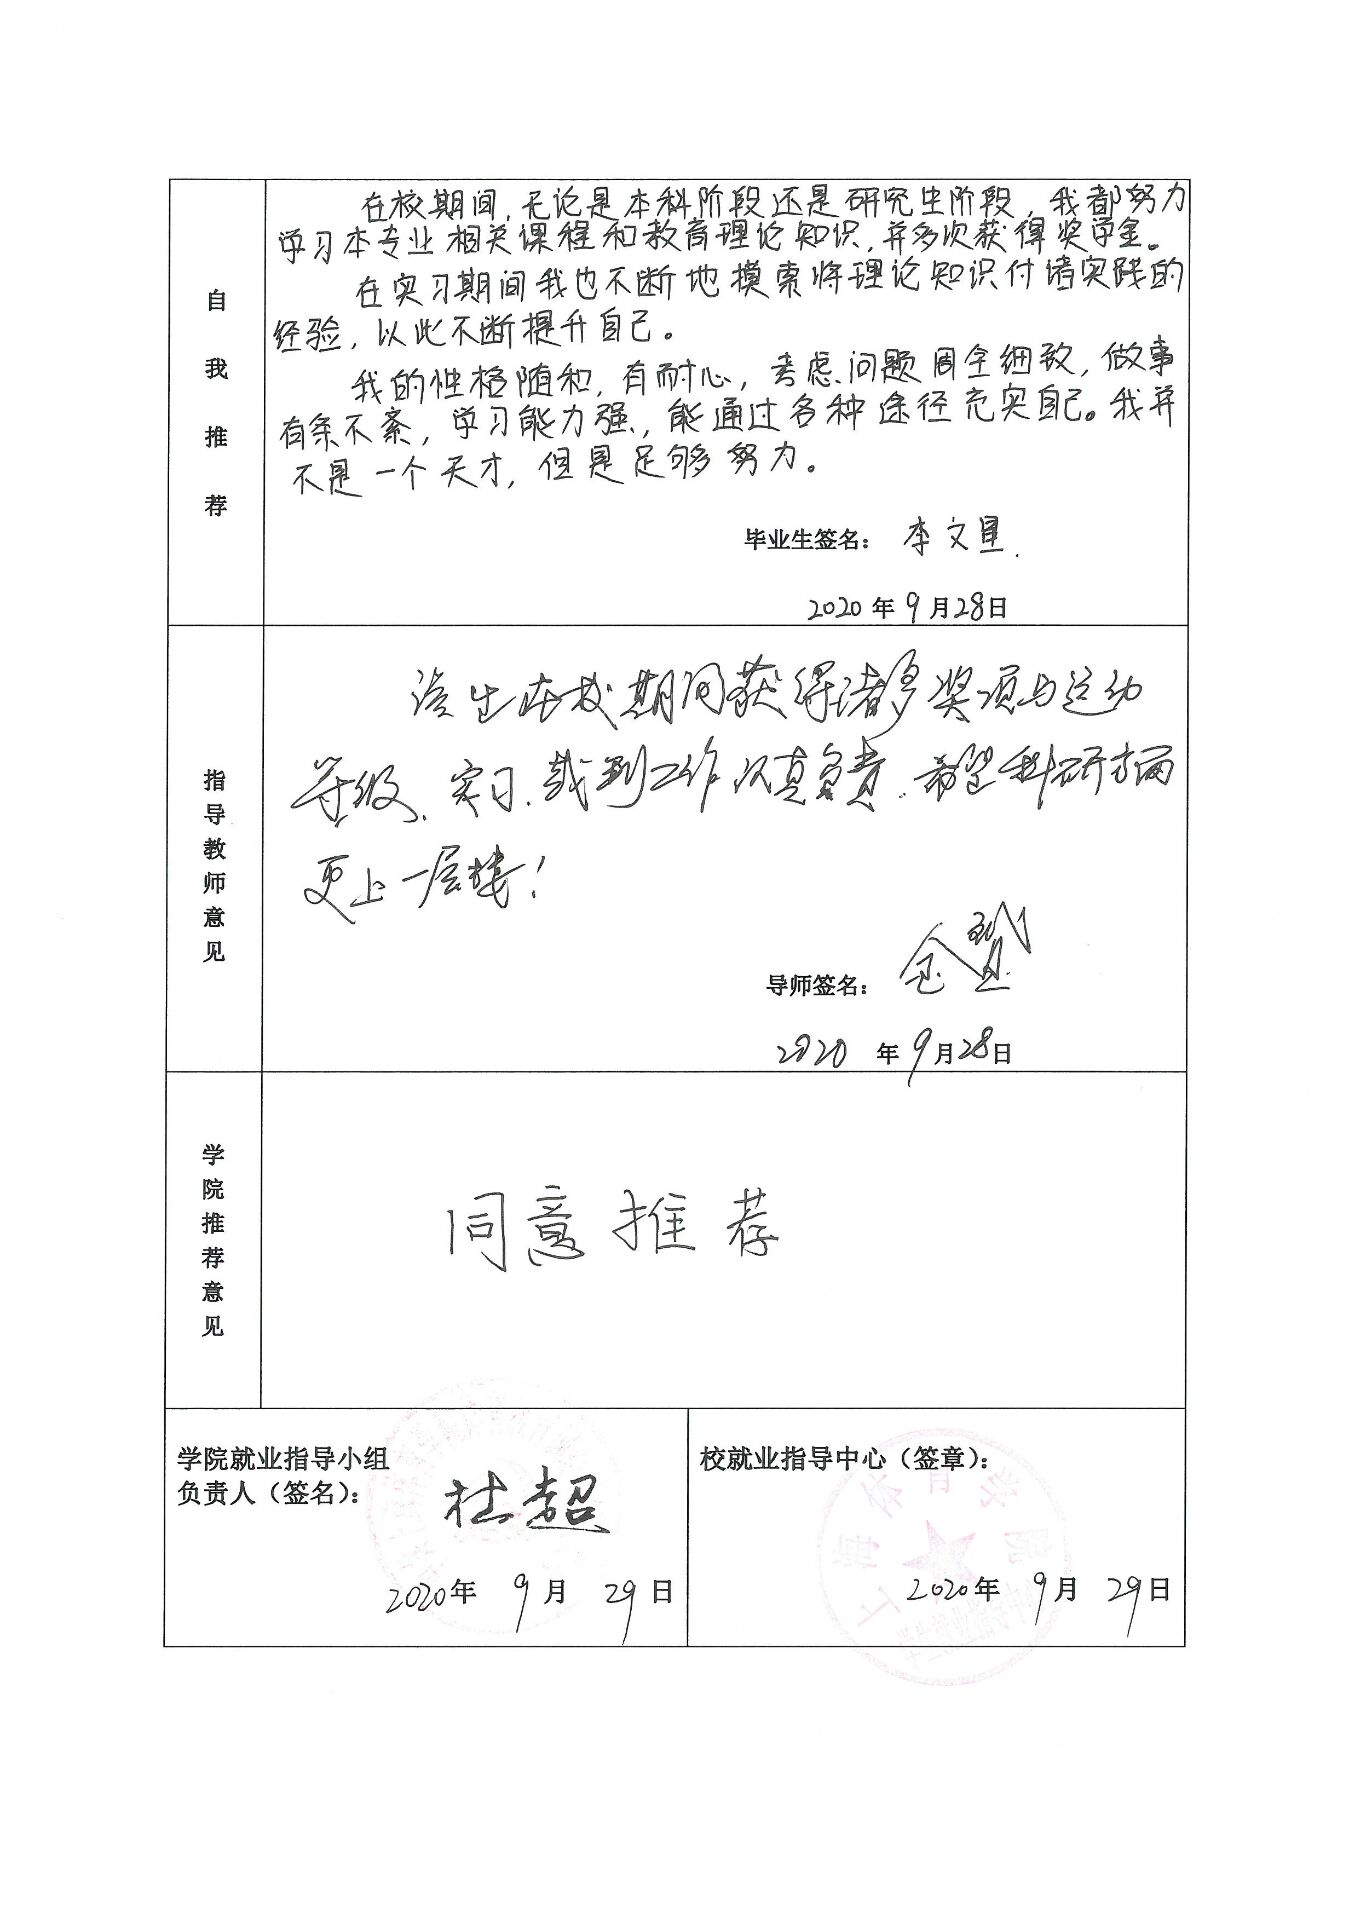 自我推荐
在校期间,无论是本科阶段还是研究生阶段,我都努力
学习本专业相关课程和教育理论知识,并多次获得奖学金。
在实习期间我也不断地摸索将理论知识付诸实践的
经验,以此不断提升自己。
我的性格随和,有耐心,考虑问题周全细致,做事
有条不紊,学习能力强,能通过各种途径充实自己。我并
不是一个天才,但是足够努力。
毕业生签名: 李文星
2020年9月28日
指导教师意见
该生在校期间获得诸多奖项与运动
等级、实习、裁判工作认真负责,希望科研方面
更上一层楼!
导师签名:
2020年9月28日
学院推荐意见
同意推荐
学院就业指导小组
负责人(签名): 杜超
2020年 9月 29日
校就业指导中心(签章):
上海体育学院
2020年 9月 29日